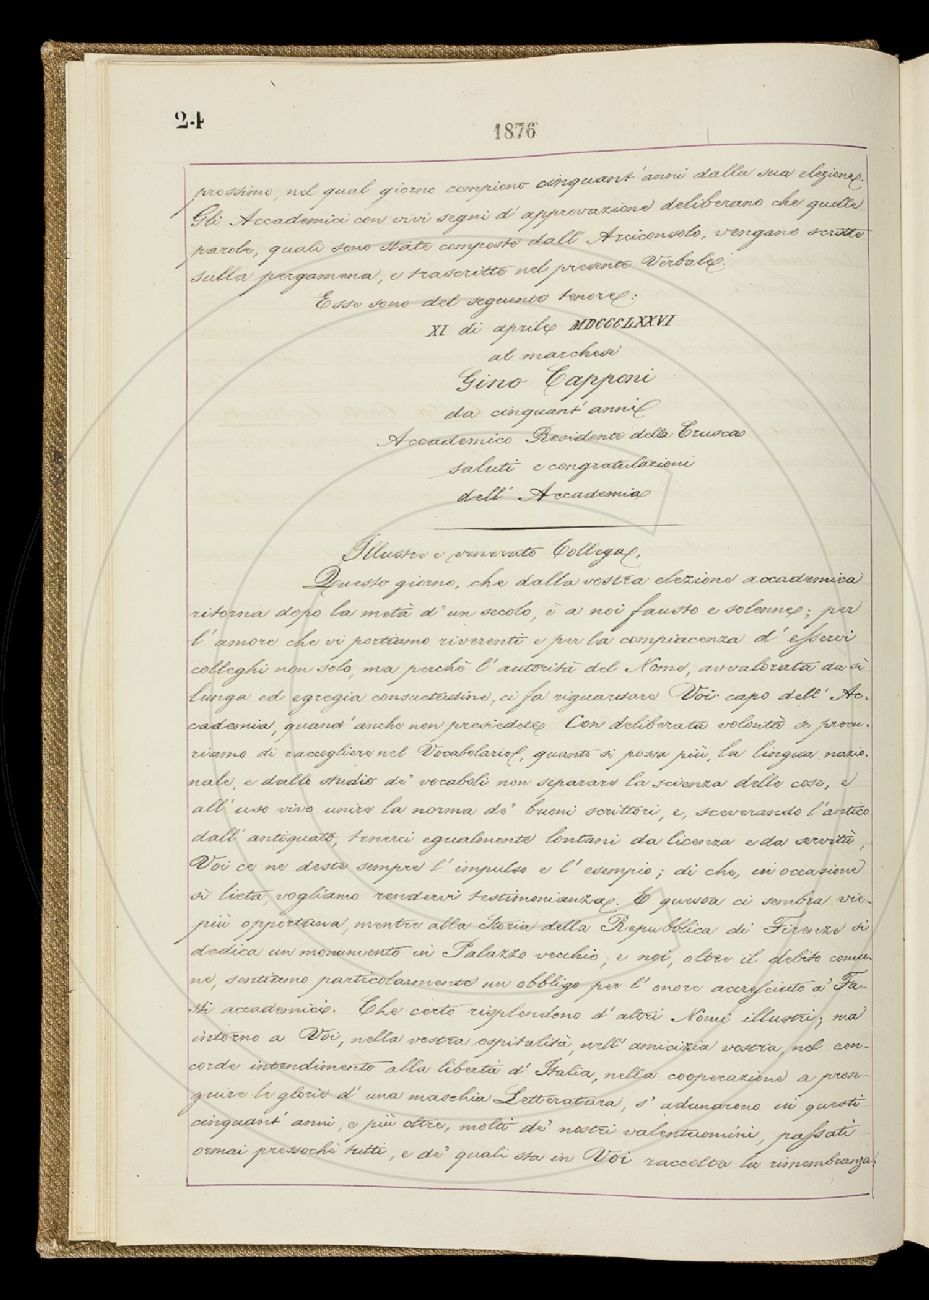 24
1876
prossimo, nel qual giorno compiono cinquant'anni dalla sua elezione.
Gli Accademici con vivi segni d'approvazione deliberano che quelle
parole, quali sono state composte dall'Arciconsolo, vengano scritte
sulla pergamena, e trascritte nel presente Verbale.
Esse sono del seguente tenore:
XI di aprile MDCCCLXXVI
al marchese
Gino Capponi
da cinquant'anni
Accademico Residente della Crusca
saluti e congratulazioni
dell'Accademia
Illustre e venerato Collega,
Questo giorno, che dalla vostra elezione accademica
ritorna dopo la metà d'un secolo, è a noi fausto e solenne; per
l'amore che vi portiamo riverenti e per la compiacenza d'esservi
colleghi non solo, ma perchè l'autorità del Nome, avvalorata da sì
lunga ed egregia consuetudine, ci fa riguardare Voi capo dell'Ac-
cademia, quand'anche non presiedete. Con deliberata volontà si procu-
riamo di raccogliere nel Vocabolario, quanto si possa più, la lingua nazio-
nale, e dallo studio de' vocaboli non separare la scienza delle cose, e
all'uso vivo unire la norma de' buoni scrittori, e, sceverando l'antico
dall'antiquato, tenerci egualmente lontani da licenza e da servitù,
Voi ce ne deste sempre l'impulso e l'esempio; di che, in occasione
sì lieta, vogliamo rendervi testimonianza. E questa ci sembra vie-
più opportuna, mentre alla Storia della Repubblica di Firenze si
dedica un monumento in Palazzo vecchio; e noi, oltre il debito comu-
ne, sentiamo particolarmente un obbligo per l'onore accresciuto a' Fa-
sti accademici. Che certo risplendono d'altri Nomi illustri; ma
intorno a Voi, nella vostra ospitalità, nell'amicizia vostra, nel con-
corde intendimento alla libertà d'Italia, nella cooperazione a prose-
guire le glorie d'una maschia Letteratura, s'adunarono in questi
cinquant'anni, e più oltre, molti de' nostri valentuomini, passati
ormai pressochè tutti, e de' quali sta in Voi raccolta la rimembranza;